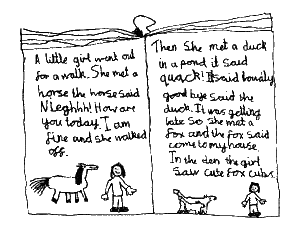 A little girl went out
for a walk. She met a
horse the horse said
Nieghhh! How are
you today. I am
fine and she walked
off.
Then she met a duck
in a pond it said
quack! It said
good bye said the
duck. It was getting
late so she met a
fox and the fox said
come to my house.
In the den the girl
saw cute fox cubs.